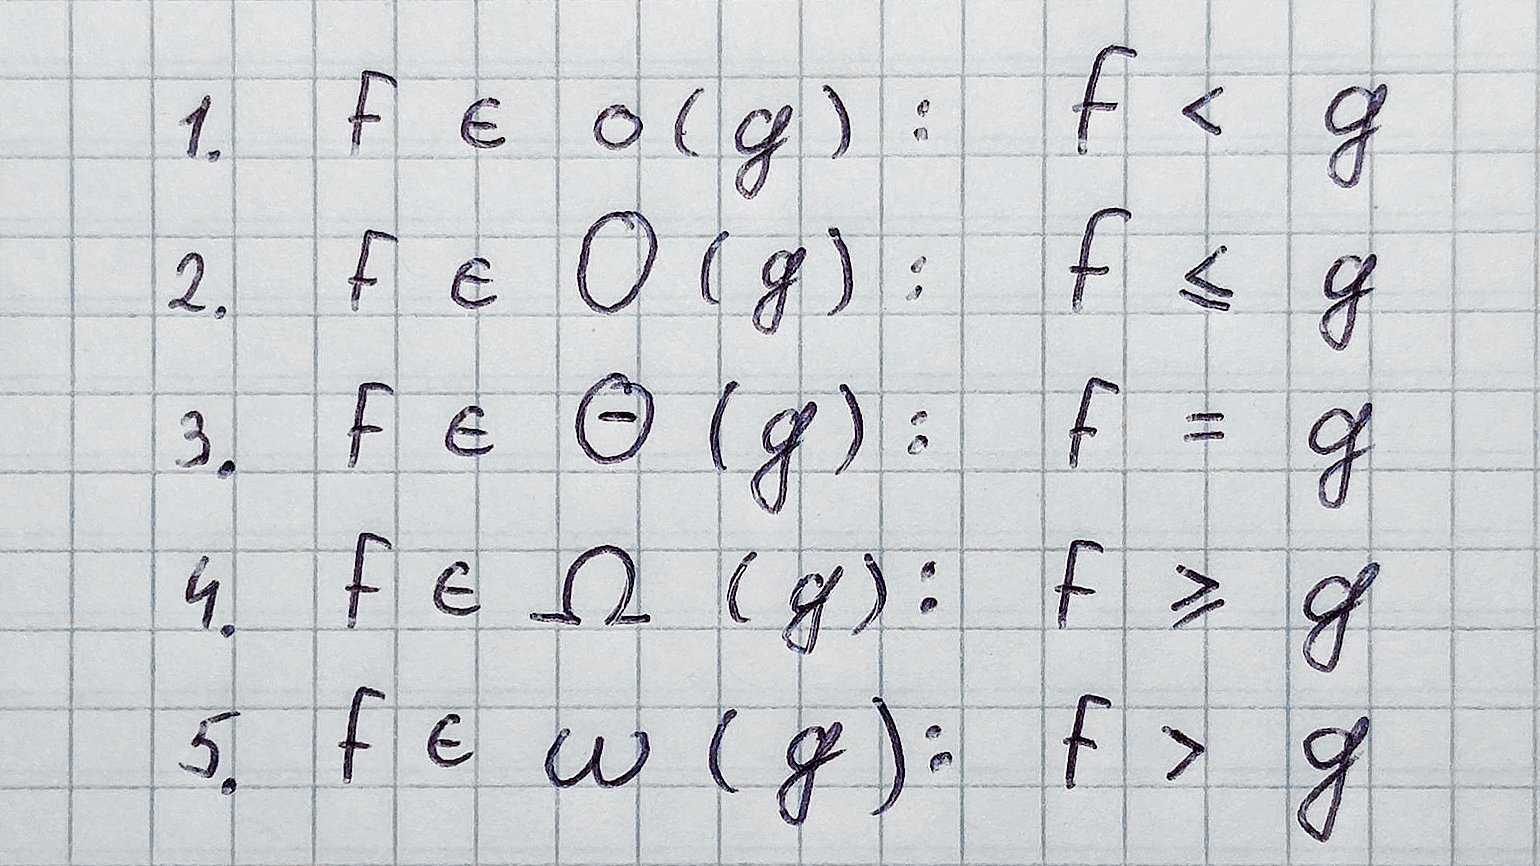 1. f ∈ o(g): f < g
2. f ∈ O(g): f ≤ g
3. f ∈ Θ(g): f = g
4. f ∈ Ω(g): f ≥ g
5. f ∈ ω(g): f > g